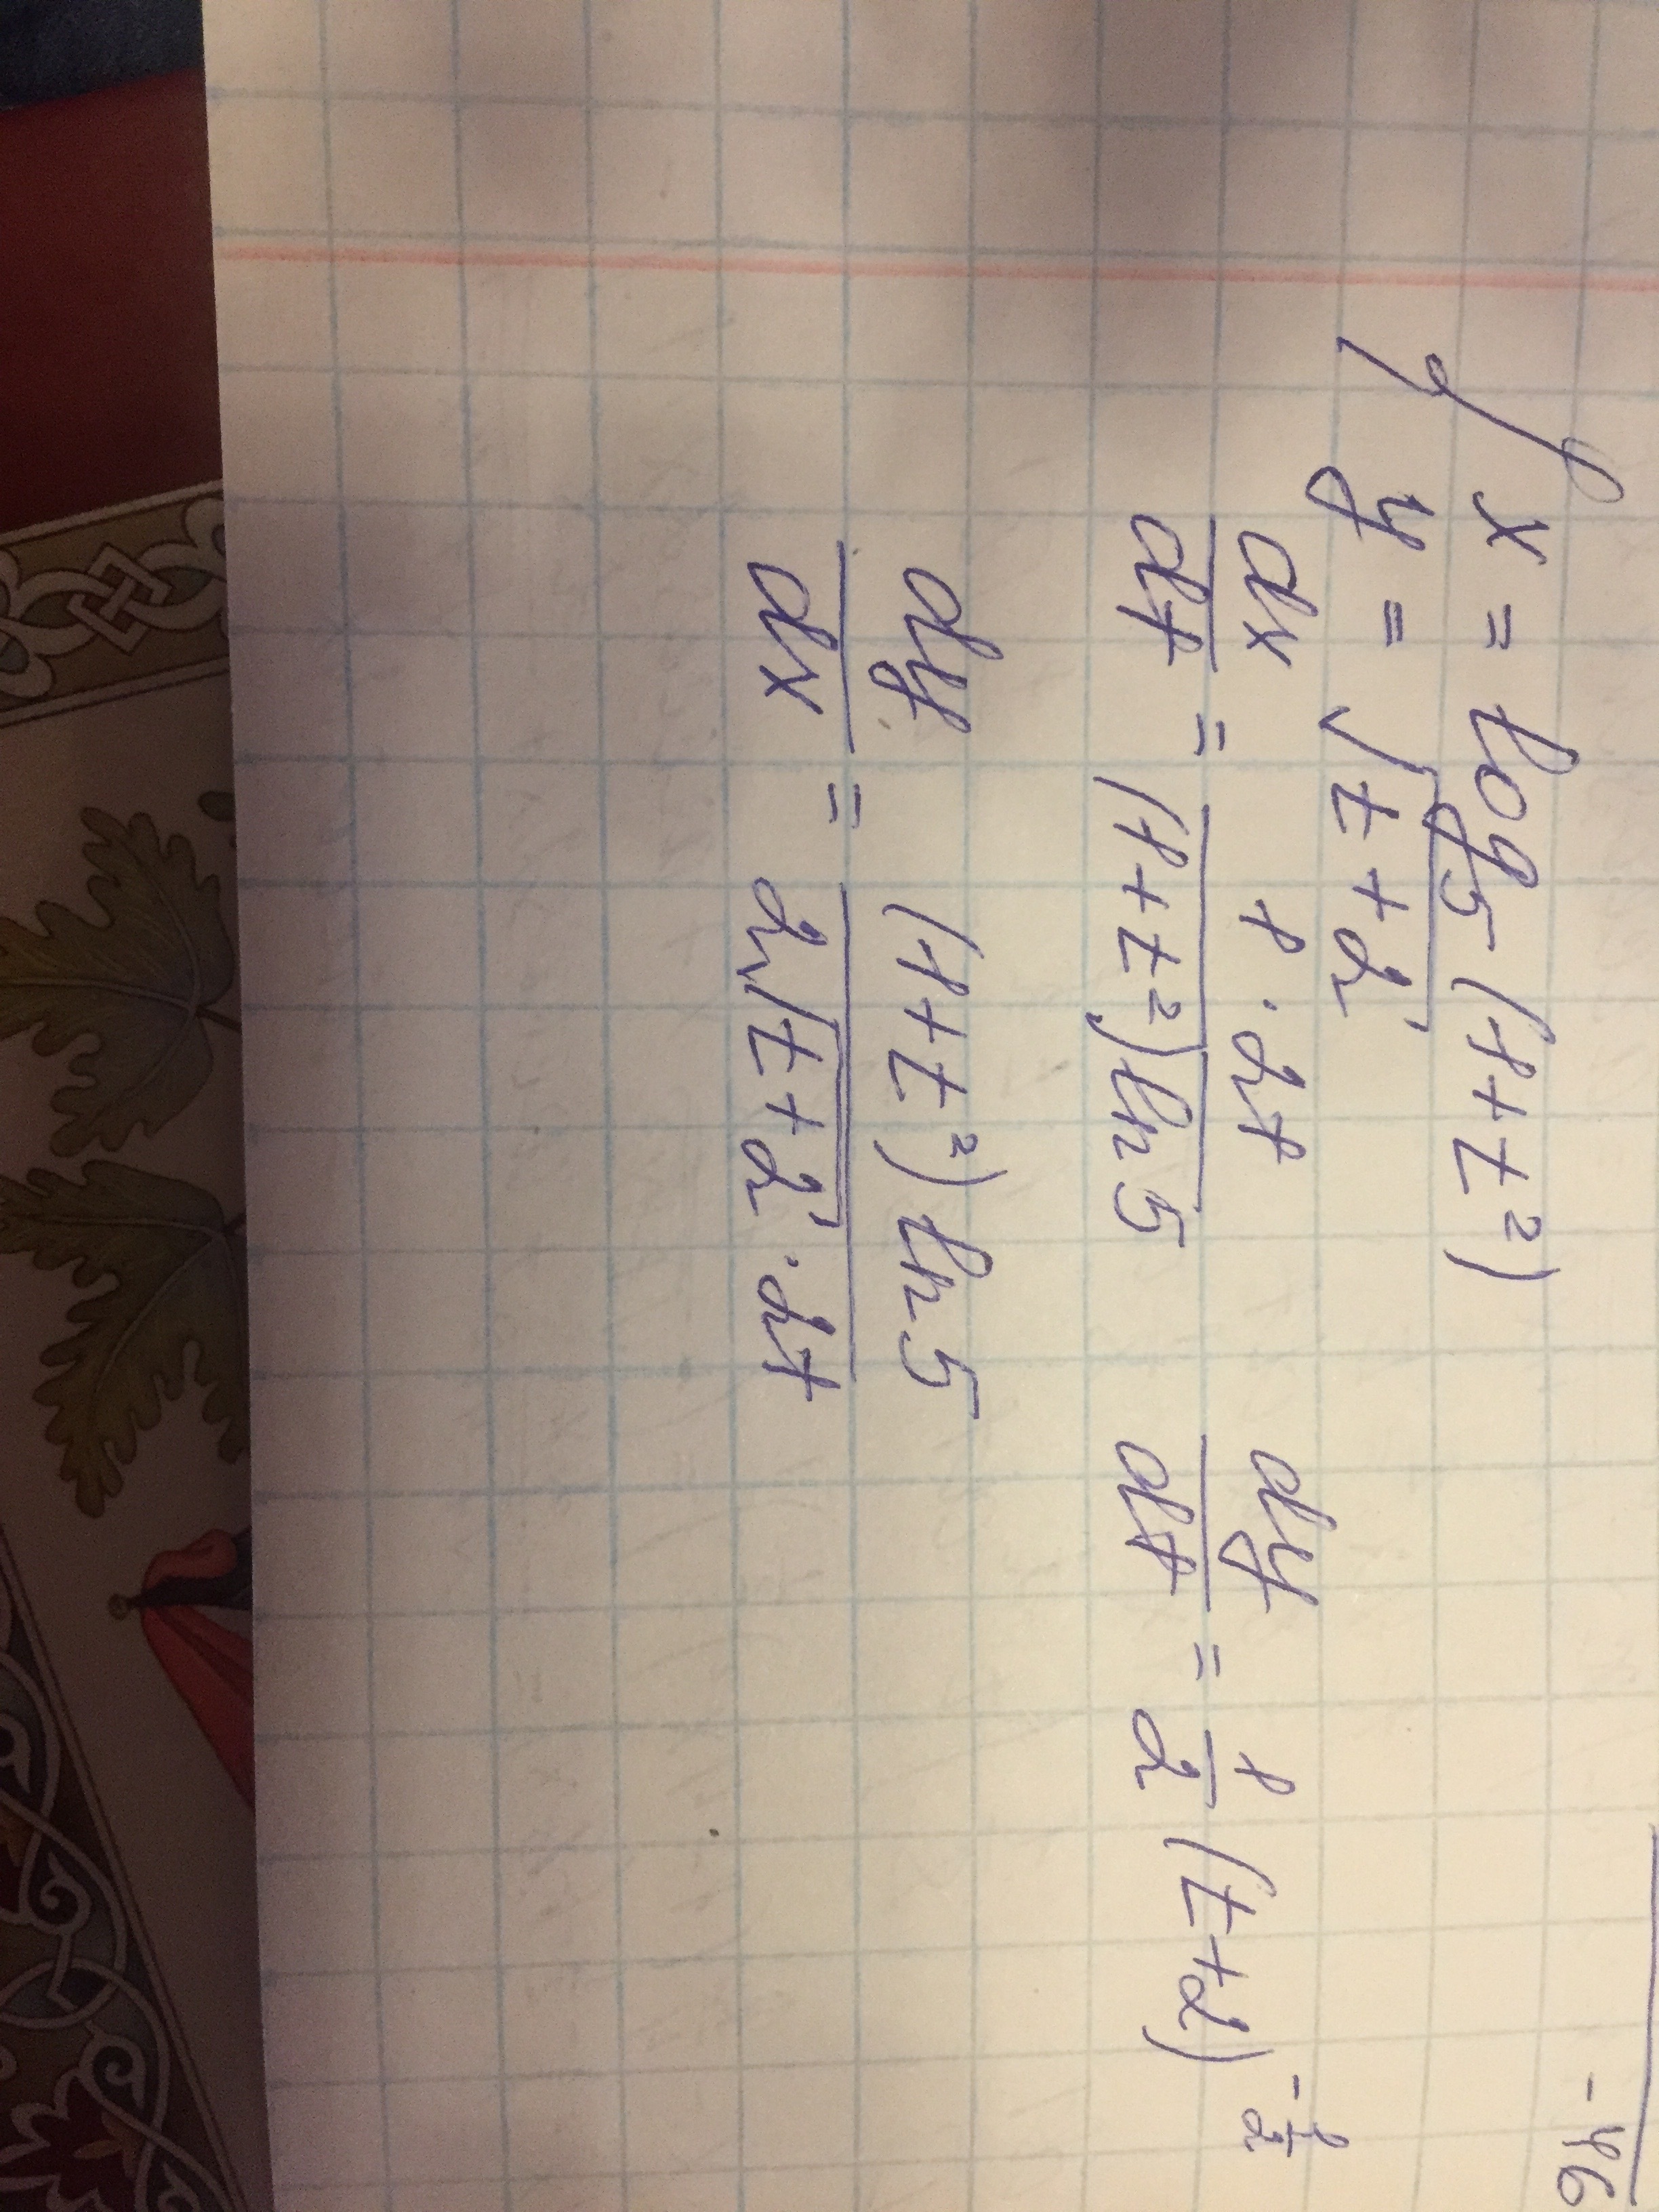 -46
{ x = log₅ (1+t²)
y = √(t+2)
dx/dt = 1·2t/((1+t²)ln5) dy/dt = 1/2 (t+2)^(-1/2)
dy/dx = (1+t²)ln5/(2√(t+2)·2t)